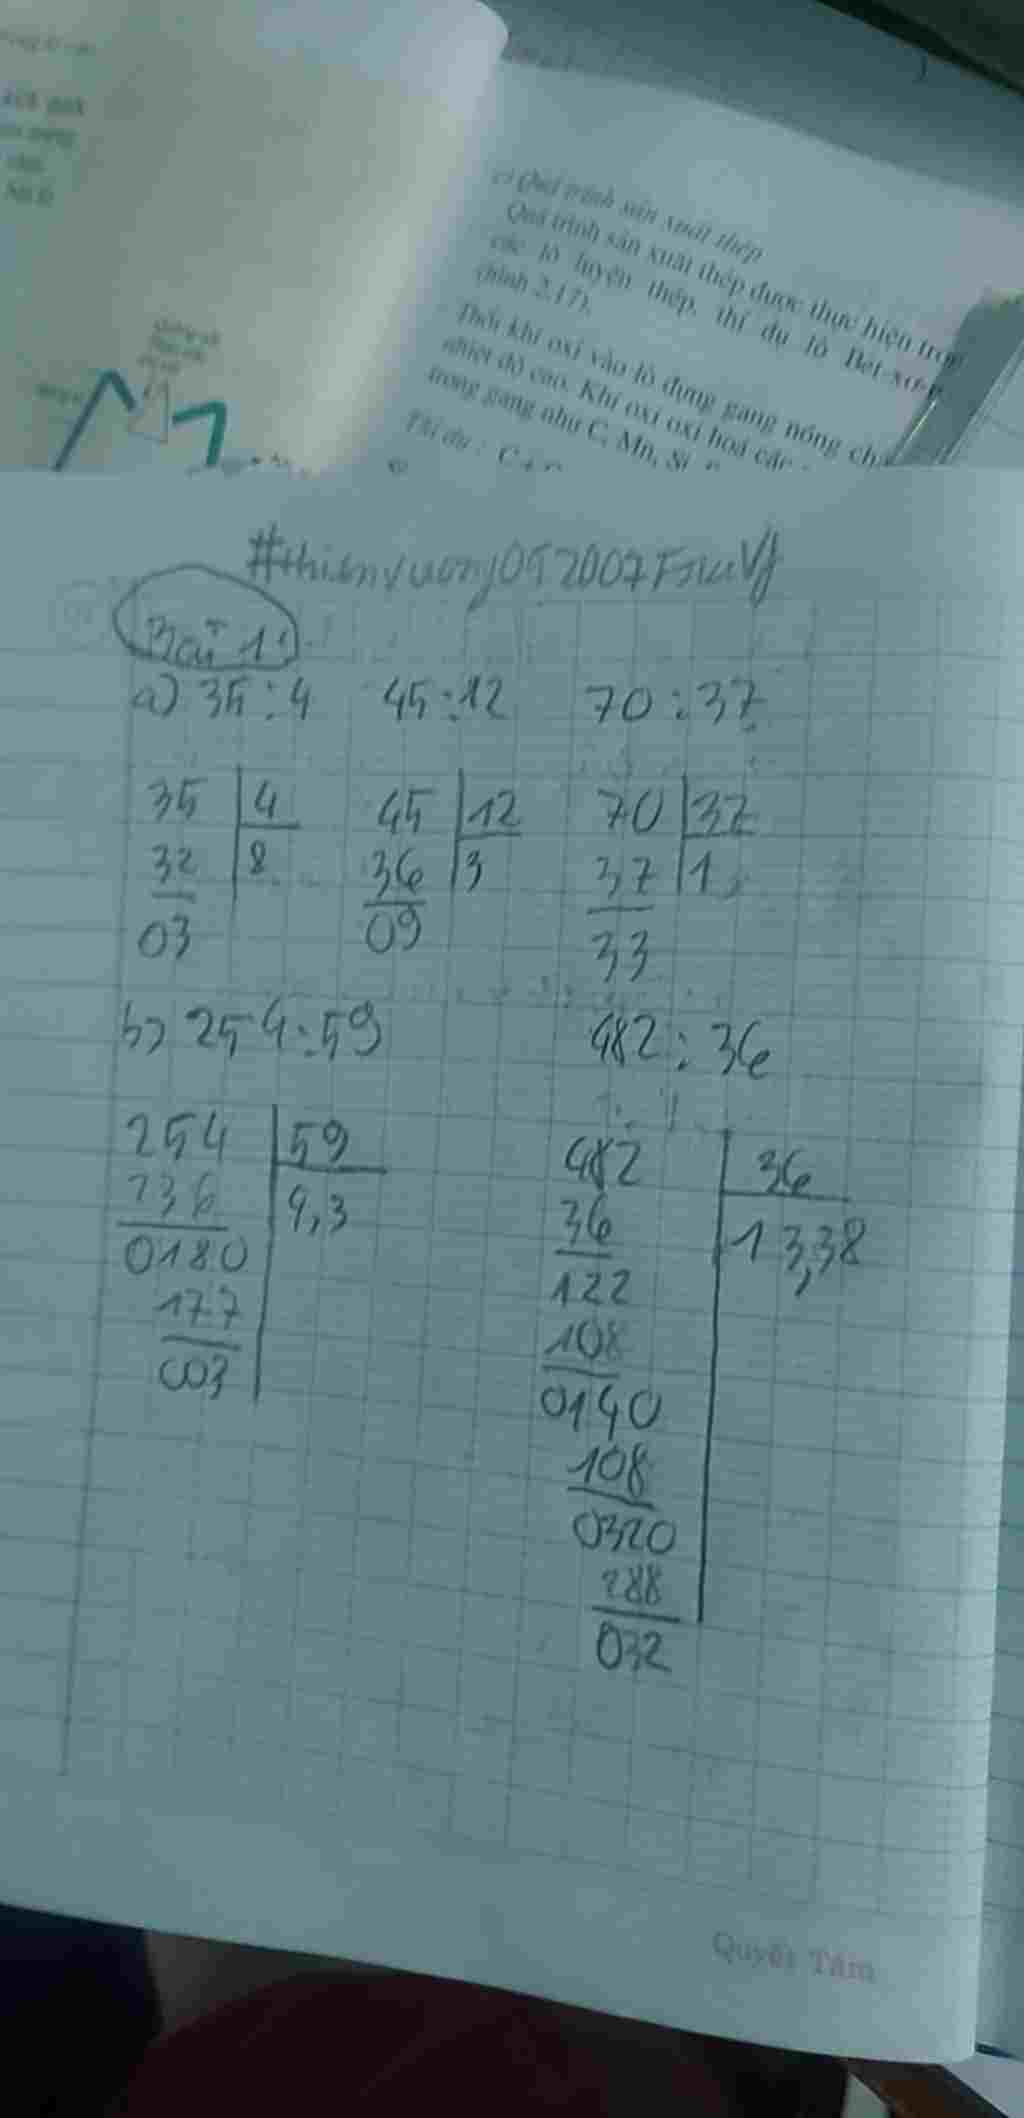 c) Quá trình sản xuất thép
Quá trình sản xuất thép được thực hiện trong
các lò luyện thép, thí dụ lò Bet-xơ-me
(hình 2.17).
Thổi khí oxi vào lò đựng gang nóng
nhiệt độ cao. Khí oxi oxi hoá các
trong gang như C, Mn, Si
Thí dụ : C +
#thienvuong092007
Bài 1:
a) 35 : 4 45 : 12 70 : 37
35 4 45 12 70 37
32 8 36 3 37 1
03 09 33
b) 254 : 59 482 : 36
254 59 482 36
236 4,3 36 13,38
0180 122
177 108
003 0140
108
0320
288
032
Quyết Tâm